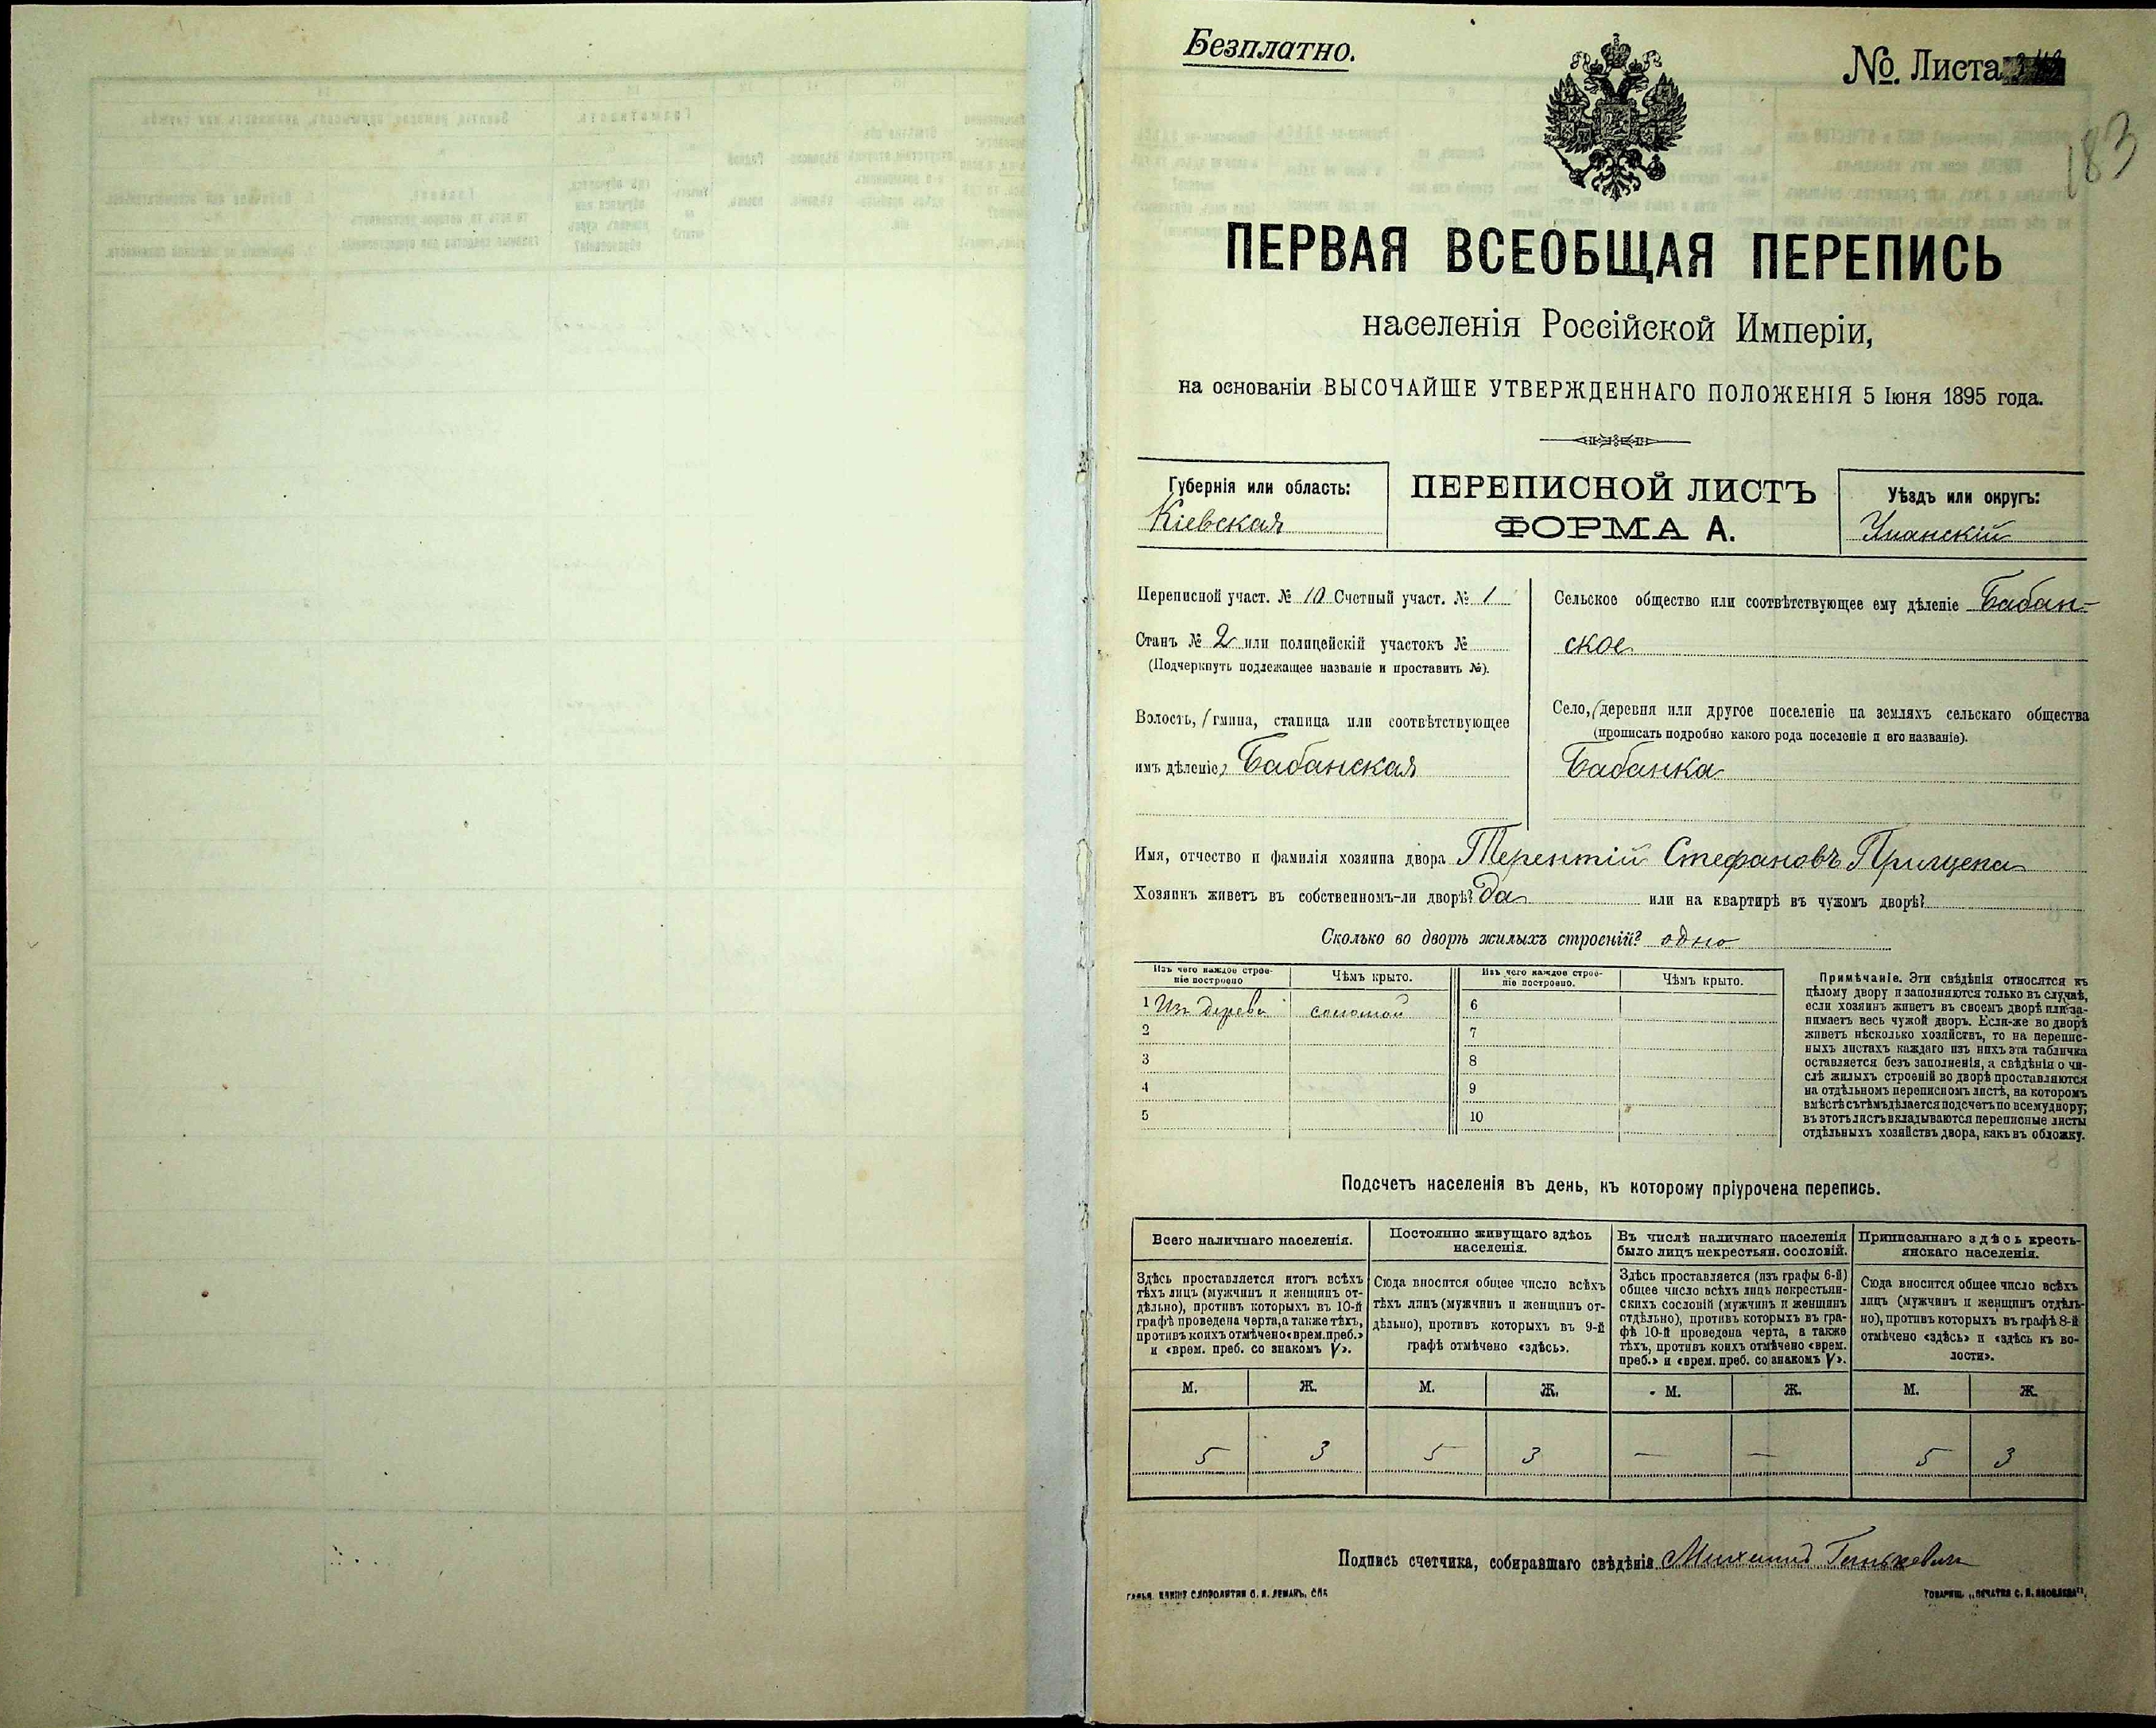 Безплатно.
№. Листа
183
ПЕРВАЯ ВСЕОБЩАЯ ПЕРЕПИСЬ
населенія Россійской Имперіи,
на основаніи ВЫСОЧАЙШЕ УТВЕРЖДЕННАГО ПОЛОЖЕНІЯ 5 Іюня 1895 года.
Губернія или область:
Кіевская
ПЕРЕПИСНОЙ ЛИСТЪ
ФОРМА А.
Уѣздъ или округъ:
Уманскій
Переписной участ. № 10 Счетный участ. № 1
Станъ № 2 или полицейскій участокъ №
(Подчеркнуть подлежащее названіе и проставить №).
Волость, (гмина, станица или соотвѣтствующее
имъ дѣленіе) Бабанская
Сельское общество или соотвѣтствующее ему дѣленіе Бабан-
ское
Село, (деревня или другое поселеніе на земляхъ сельскаго общества
(прописать подробно какого рода поселеніе и его названіе).
Бабанка
Имя, отчество и фамилія хозяина двора Терентій Стефановъ Прищепа
Хозяинъ живетъ въ собственномъ-ли дворѣ? Да или на квартирѣ въ чужомъ дворѣ?
Сколько во дворѣ жилыхъ строеній? одно
Изъ чего каждое строе-
ніе построено
Чѣмъ крыто.
Изъ чего каждое строе-
ніе построено.
Чѣмъ крыто.
1 Изъ дерева соломой
2
3
4
5
6
7
8
9
10
Примѣчаніе. Эти свѣдѣнія относятся къ
цѣлому двору и заполняются только въ случаѣ,
если хозяинъ живетъ въ своемъ дворѣ или за-
нимаетъ весь чужой дворъ. Если-же во дворѣ
живетъ нѣсколько хозяйствъ, то на перепис-
ныхъ листахъ каждаго изъ нихъ эта табличка
оставляется безъ заполненія, а свѣдѣнія о чи-
слѣ жилыхъ строеній во дворѣ проставляются
на отдѣльномъ переписномъ листѣ, на которомъ
вмѣстѣ съ тѣмъ дѣлается подсчетъ по всему двору;
въ этотъ листъ вкладываются переписные листы
отдѣльныхъ хозяйствъ двора, какъ въ обложку.
Подсчетъ населенія въ день, къ которому пріурочена перепись.
Всего наличнаго населенія.
Здѣсь проставляется итогъ всѣхъ
тѣхъ лицъ (мужчинъ и женщинъ от-
дѣльно), противъ которыхъ въ 10-й
графѣ проведена черта, а также тѣхъ,
противъ коихъ отмѣчено «врем. преб.»
и «врем. преб. со знакомъ V».
Постоянно живущаго здѣсь
населенія.
Сюда вносится общее число всѣхъ
тѣхъ лицъ (мужчинъ и женщинъ от-
дѣльно), противъ которыхъ въ 9-й
графѣ отмѣчено «здѣсь».
Въ числѣ наличнаго населенія
было лицъ некрестьян. сословій.
Здѣсь проставляется (изъ графы 6-й)
общее число всѣхъ лицъ некрестьян-
скихъ сословій (мужчинъ и женщинъ
отдѣльно), противъ которыхъ въ гра-
фѣ 10-й проведена черта, а также
тѣхъ, противъ коихъ отмѣчено «врем.
преб.» и «врем. преб. со знакомъ V».
Приписаннаго здѣсь кресть-
янскаго населенія.
Сюда вносится общее число всѣхъ
лицъ (мужчинъ и женщинъ отдѣль-
но), противъ которыхъ въ графѣ 8-й
отмѣчено «здѣсь» и «здѣсь къ во-
лости».
М. Ж. М. Ж. М. Ж. М. Ж.
5 3 5 3 — — 5 3
Подпись счетчика, собиравшаго свѣдѣнія Михаилъ